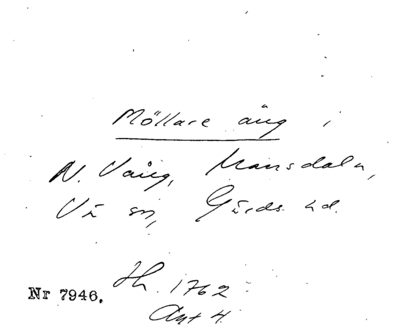 Möllare äng i
N. Vång, Mansdala,
Vä sn, Gärds hd.
Hh. 1762
Nr 7946.
Akt 4.